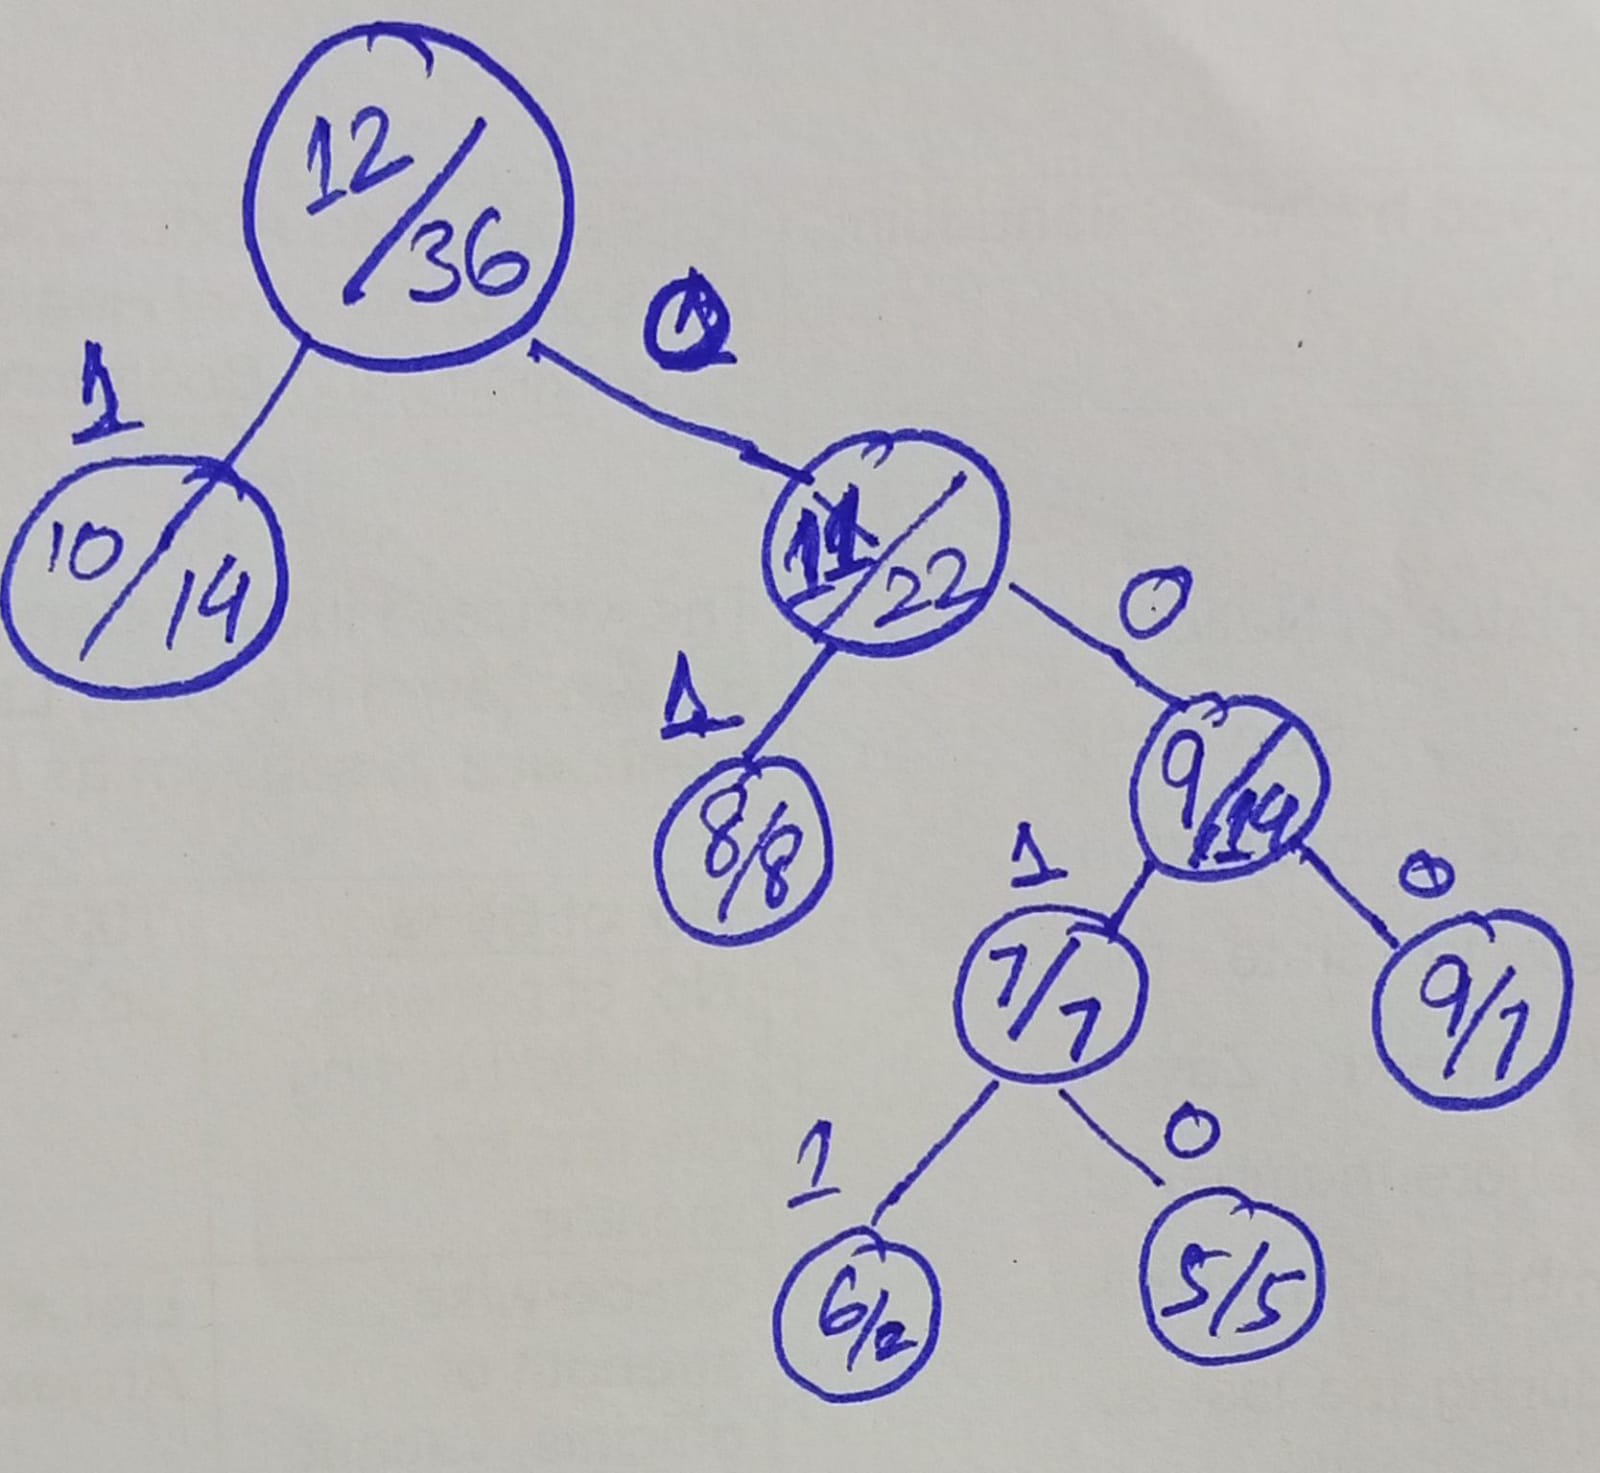 12/36
1
10/14
11/22
0
1
8/8
9/14
1
0
7/7
9/7
1
0
6/2
5/5